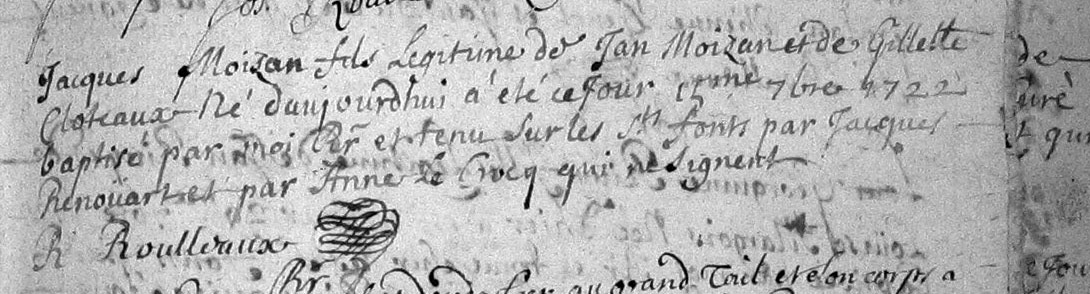 Jacques Moizan fils Legitime de Jan Moizan et de Gillette
Cloteaux Né d'aujourdhui a été ce Jour 7bre 1722
baptisé par moi et tenu sur les Sts fonts par Jacques
Renoüart et par Anne Le Crocq qui ne signent
R Roulleaux
au grand et son corps a